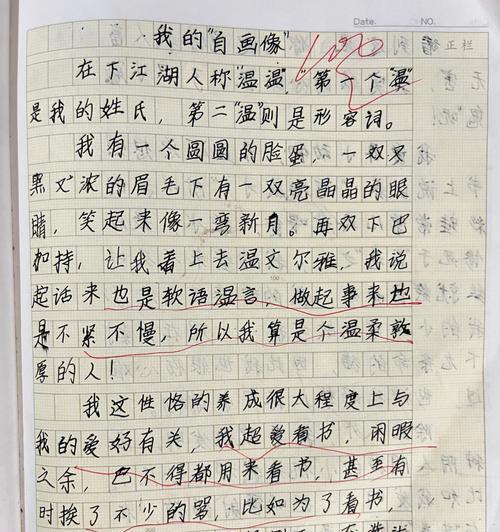 Date. NO.
我的"自画像" 100
在下江湖人称"温温","第一个"温"
是我的姓氏，第二"温"则是形容词。
我有一个圆圆的脸蛋，一双又
黑又浓的眉毛下有一双亮晶晶的眼
睛，笑起来像一弯新月。再双下巴
加持，让我看上去温文尔雅，我说
起话来也是软语温言，做起事来也
是不紧不慢，所以我算是个温柔敦
厚的人！
我这性格的养成很大程度上与
我的爱好有关，我超爱看书，闲暇
之余，巴不得都用来看书，甚至有
时挨了不少的骂，比如为了看书，